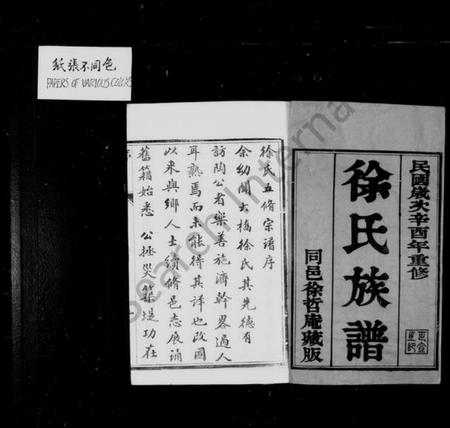 紙張不同色
PAPERS OF VARIOUS COLORS
民國歲次辛酉年重修
徐氏族譜
同邑徐哲庵藏版
徐氏五脩宗譜序
余幼聞大橋徐氏其先德有
訪陶公者樂善施濟幹畧過人
耳熟焉而未能得其詳也改國
以來與鄉人士續脩邑志展誦
舊籍始悉 公拯災築堤功在